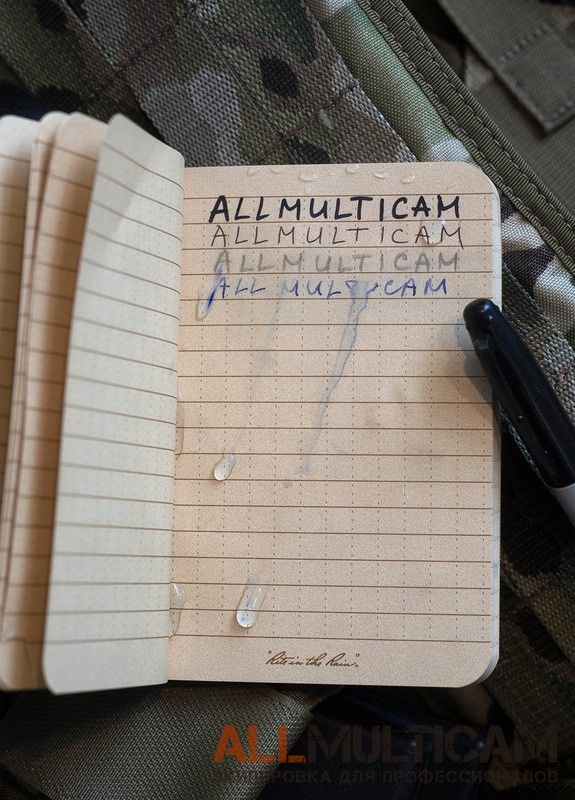 ALLMULTICAM
ALLMULTICAM
ALLMULTICAM
ALL MULTICAM
"Rite in the Rain".
ALLMULTICAM
ЭКИПИРОВКА ДЛЯ ПРОФЕССИОНАЛОВ